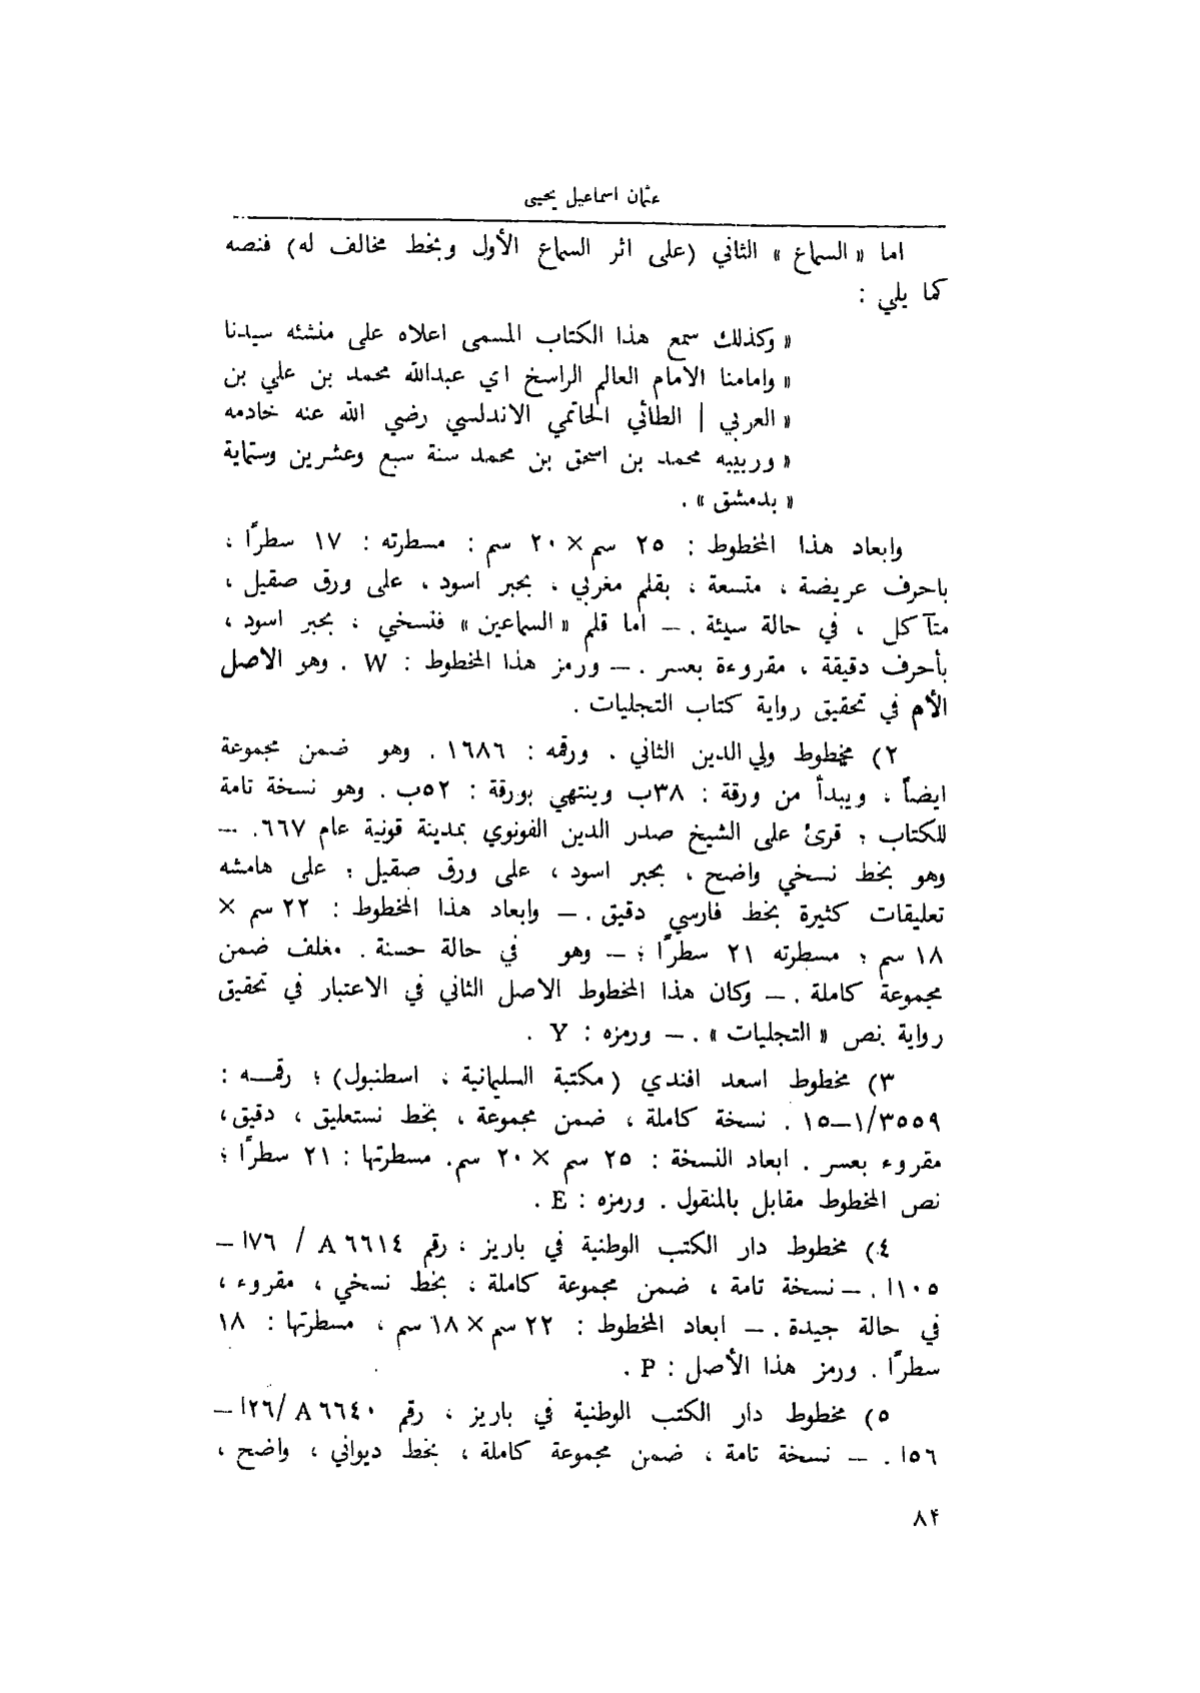 عثمان اسماعيل يحيى
اما « السماع » الثاني (على اثر السماع الأول وبخط مخالف له) فنصه
كما يلي :
« وكذلك سمع هذا الكتاب المسمى اعلاه على منشئه سيدنا
« وامامنا الامام العالم الراسخ اي عبدالله محمد بن علي بن
« العربي | الطائي الحاتمي الاندلسي رضي الله عنه خادمه
« وربيبه محمد بن اسحق بن محمد سنة سبع وعشرين وستماية
« بدمشق » .
وابعاد هذا المخطوط : ٢٥ سم × ٢٠ سم : مسطرته : ١٧ سطرًا ،
باحرف عريضة ، متسعة ، بقلم مغربي ، بحبر اسود ، على ورق صقيل ،
متآكل ، في حالة سيئة . — اما قلم « السماعين » فنسخي ، بحبر اسود ،
بأحرف دقيقة ، مقروءة بعسر . — ورمز هذا المخطوط : W . وهو الاصل
الأم في تحقيق رواية كتاب التجليات .
٢) مخطوط ولي الدين الثاني . ورقمه : ١٦٨٦ . وهو ضمن مجموعة
ايضاً ، ويبدأ من ورقة : ٣٨ب وينتهي بورقة : ٥٢ب . وهو نسخة تامة
للكتاب ؛ قرئ على الشيخ صدر الدين الفونوي بمدينة قونية عام ٦٦٧. —
وهو بخط نسخي واضح ، بحبر اسود ، على ورق صقيل ؛ على هامشه
تعليقات كثيرة بخط فارسي دقيق . — وابعاد هذا المخطوط : ٢٢ سم ×
١٨ سم ؛ مسطرته ٢١ سطرًا ؛ — وهو في حالة حسنة . مغلف ضمن
مجموعة كاملة . — وكان هذا المخطوط الاصل الثاني في الاعتبار في تحقيق
رواية نص « التجليات » . — ورمزه : Y .
٣) مخطوط اسعد افندي (مكتبة السليمانية ، اسطنبول) ؛ رقمـــه :
٣٥٥٩/١—١٥ . نسخة كاملة ، ضمن مجموعة ، بخط نستعليق ، دقيق ،
مقروء بعسر . ابعاد النسخة : ٢٥ سم × ٢٠ سم. مسطرتها : ٢١ سطرًا ؛
نص المخطوط مقابل بالمنقول . ورمزه : E .
٤) مخطوط دار الكتب الوطنية في باريز ، رقم A ٦٦١٤ / ٧٦ا —
١٠٥ا . — نسخة تامة ، ضمن مجموعة كاملة ، بخط نسخي ، مقروء ،
في حالة جيدة . — ابعاد المخطوط : ٢٢ سم × ١٨ سم ، مسطرتها : ١٨
سطرًا . ورمز هذا الأصل : P .
٥) مخطوط دار الكتب الوطنية في باريز ، رقم A ٦٦٤٠ /٢٦ا —
٥٦ا . — نسخة تامة ، ضمن مجموعة كاملة ، بخط ديواني ، واضح ،
۸۴